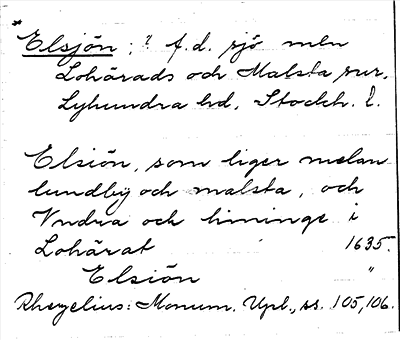 *
Elsjön; ? f.d. sjö mln
Lohärads och Malsta snr,
Lyhundra hd, Stockh. l.
Elsiön, som liger melan
lundby och malsta, och
Vndra och himinge i
Lohärat 1635.
Elsiön "
Rhezelius: Monum. Upl., ss. 105, 106.